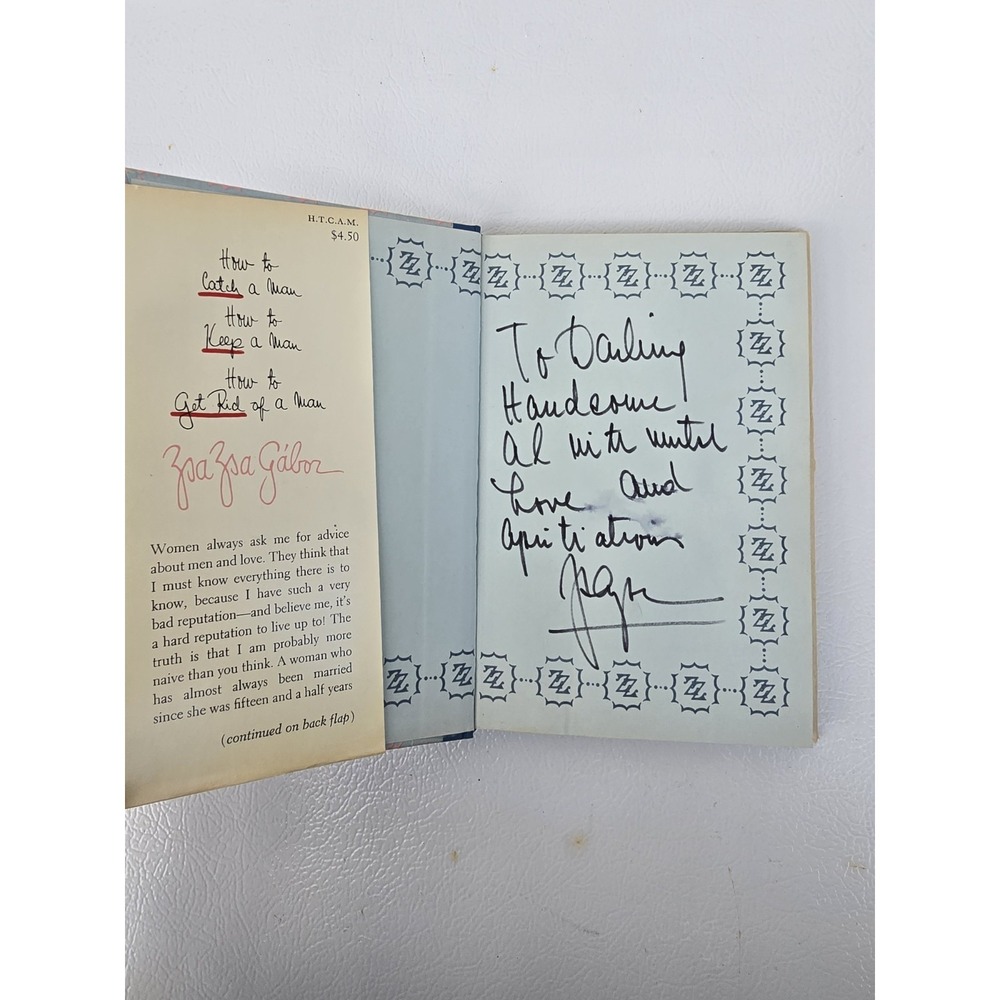 H.T.C.A.M.
$4.50
How to
Catch a Man
How to
Keep a Man
How to
Get Rid of a Man
Zsa Zsa Gábor
Women always ask me for advice
about men and love. They think that
I must know everything there is to
know, because I have such a very
bad reputation—and believe me, it's
a hard reputation to live up to! The
truth is that I am probably more
naive than you think. A woman who
has almost always been married
since she was fifteen and a half years
(continued on back flap)
ZZ ZZ ZZ ZZ ZZ ZZ ZZ
To Darling
Handsome
Al with
Love and
ZZ
ZZ
ZZ
ZZ
ZZ
ZZ ZZ ZZ ZZ ZZ ZZ ZZ